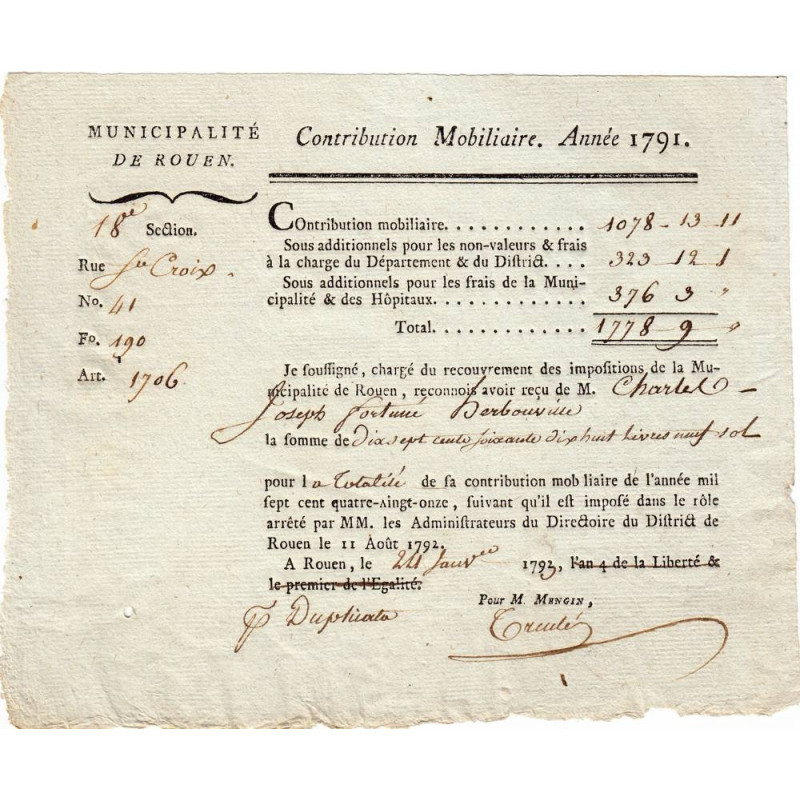 MUNICIPALITÉ
DE ROUEN.
18e Section.
Rue Ste Croix.
No. 41
Fo. 190
Art. 1706.
Contribution Mobiliaire. Année 1791.
COntribution mobiliaire. . . . . . . . . . . . 1078 - 13 - 11
Sous additionnels pour les non-valeurs & frais
à la charge du Département & du District. . . . 323 - 12 - 1
Sous additionnels pour les frais de la Muni-
cipalité & des Hôpitaux. . . . . . . . . . . . 376 3 "
Total. . . . . . . . . . . . 1778 - 9 "
Je soussigné, chargé du recouvrement des impositions de la Mu-
nicipalité de Rouen, reconnois avoir reçu de M. Charles -
Joseph fortuné herbouville
la somme de dixsept cents soixante dixhuit livres neuf sol
pour la totalité de sa contribution mob liaire de l'année mil
sept cent quatre-vingt-onze, suivant qu'il est imposé dans le rôle
arrêté par MM. les Administrateurs du Directoire du District de
Rouen le 11 Août 1792.
A Rouen, le 24 Janvier 1793, l'an 4 de la Liberté &
le premier de l'Egalité.
Pour M. MENGIN,
p Duplicata